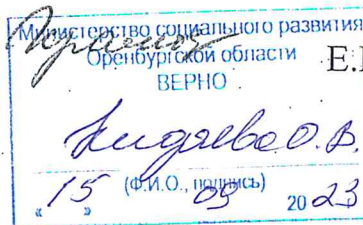 Министерство социального развития
Оренбургской области
Е.
ВЕРНО
О.В.
(Ф.И.О., подпись)
« 15 » 05 2023